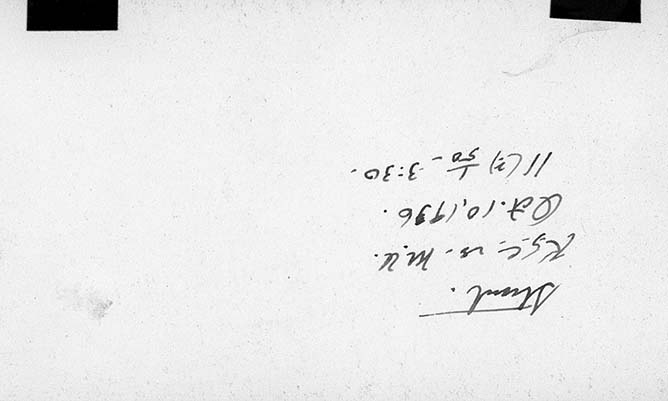 K.S.C. vs. M.U.
Oct. 10, 1936.
11(?) 1/50 - 3:30.